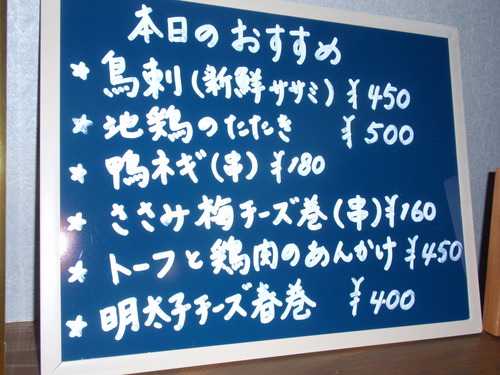 本日のおすすめ
★ 鳥刺(新鮮ササミ) ¥450
★ 地鶏のたたき ¥500
★ 鴨ネギ(串) ¥180
★ ささみ梅チーズ巻(串) ¥160
★ トーフと鶏肉のあんかけ ¥450
★ 明太子チーズ春巻 ¥400